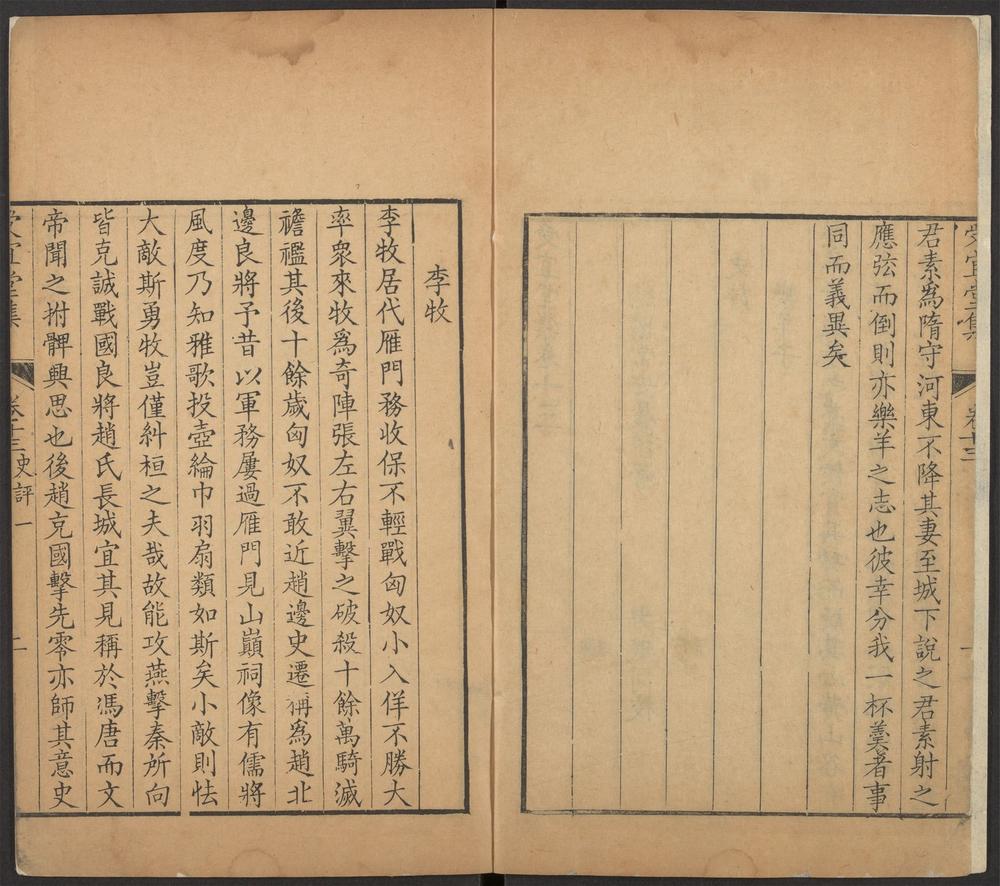 受宜堂集 卷十三
君素為隋守河東不降其妻至城下說之君素射之
應弦而倒則亦樂羊之志也彼幸分我一杯羹者事
同而義異矣
李牧
李牧居代雁門務收保不輕戰匈奴小入佯不勝大
率衆來牧爲奇陣張左右翼擊之破殺十餘萬騎滅
襜襤其後十餘歲匈奴不敢近趙邊史遷稱爲趙北
邊良將予昔以軍務屢過雁門見山巔祠像有儒將
風度乃知雅歌投壺綸巾羽扇類如斯矣小敵則怯
大敵斯勇牧豈僅糾桓之夫哉故能攻燕擊秦所向
皆克誠戰國良將趙氏長城宜其見稱於馮唐而文
帝聞之拊髀興思也後趙充國擊先零亦師其意史
受宜堂集 卷十三 史評一 二